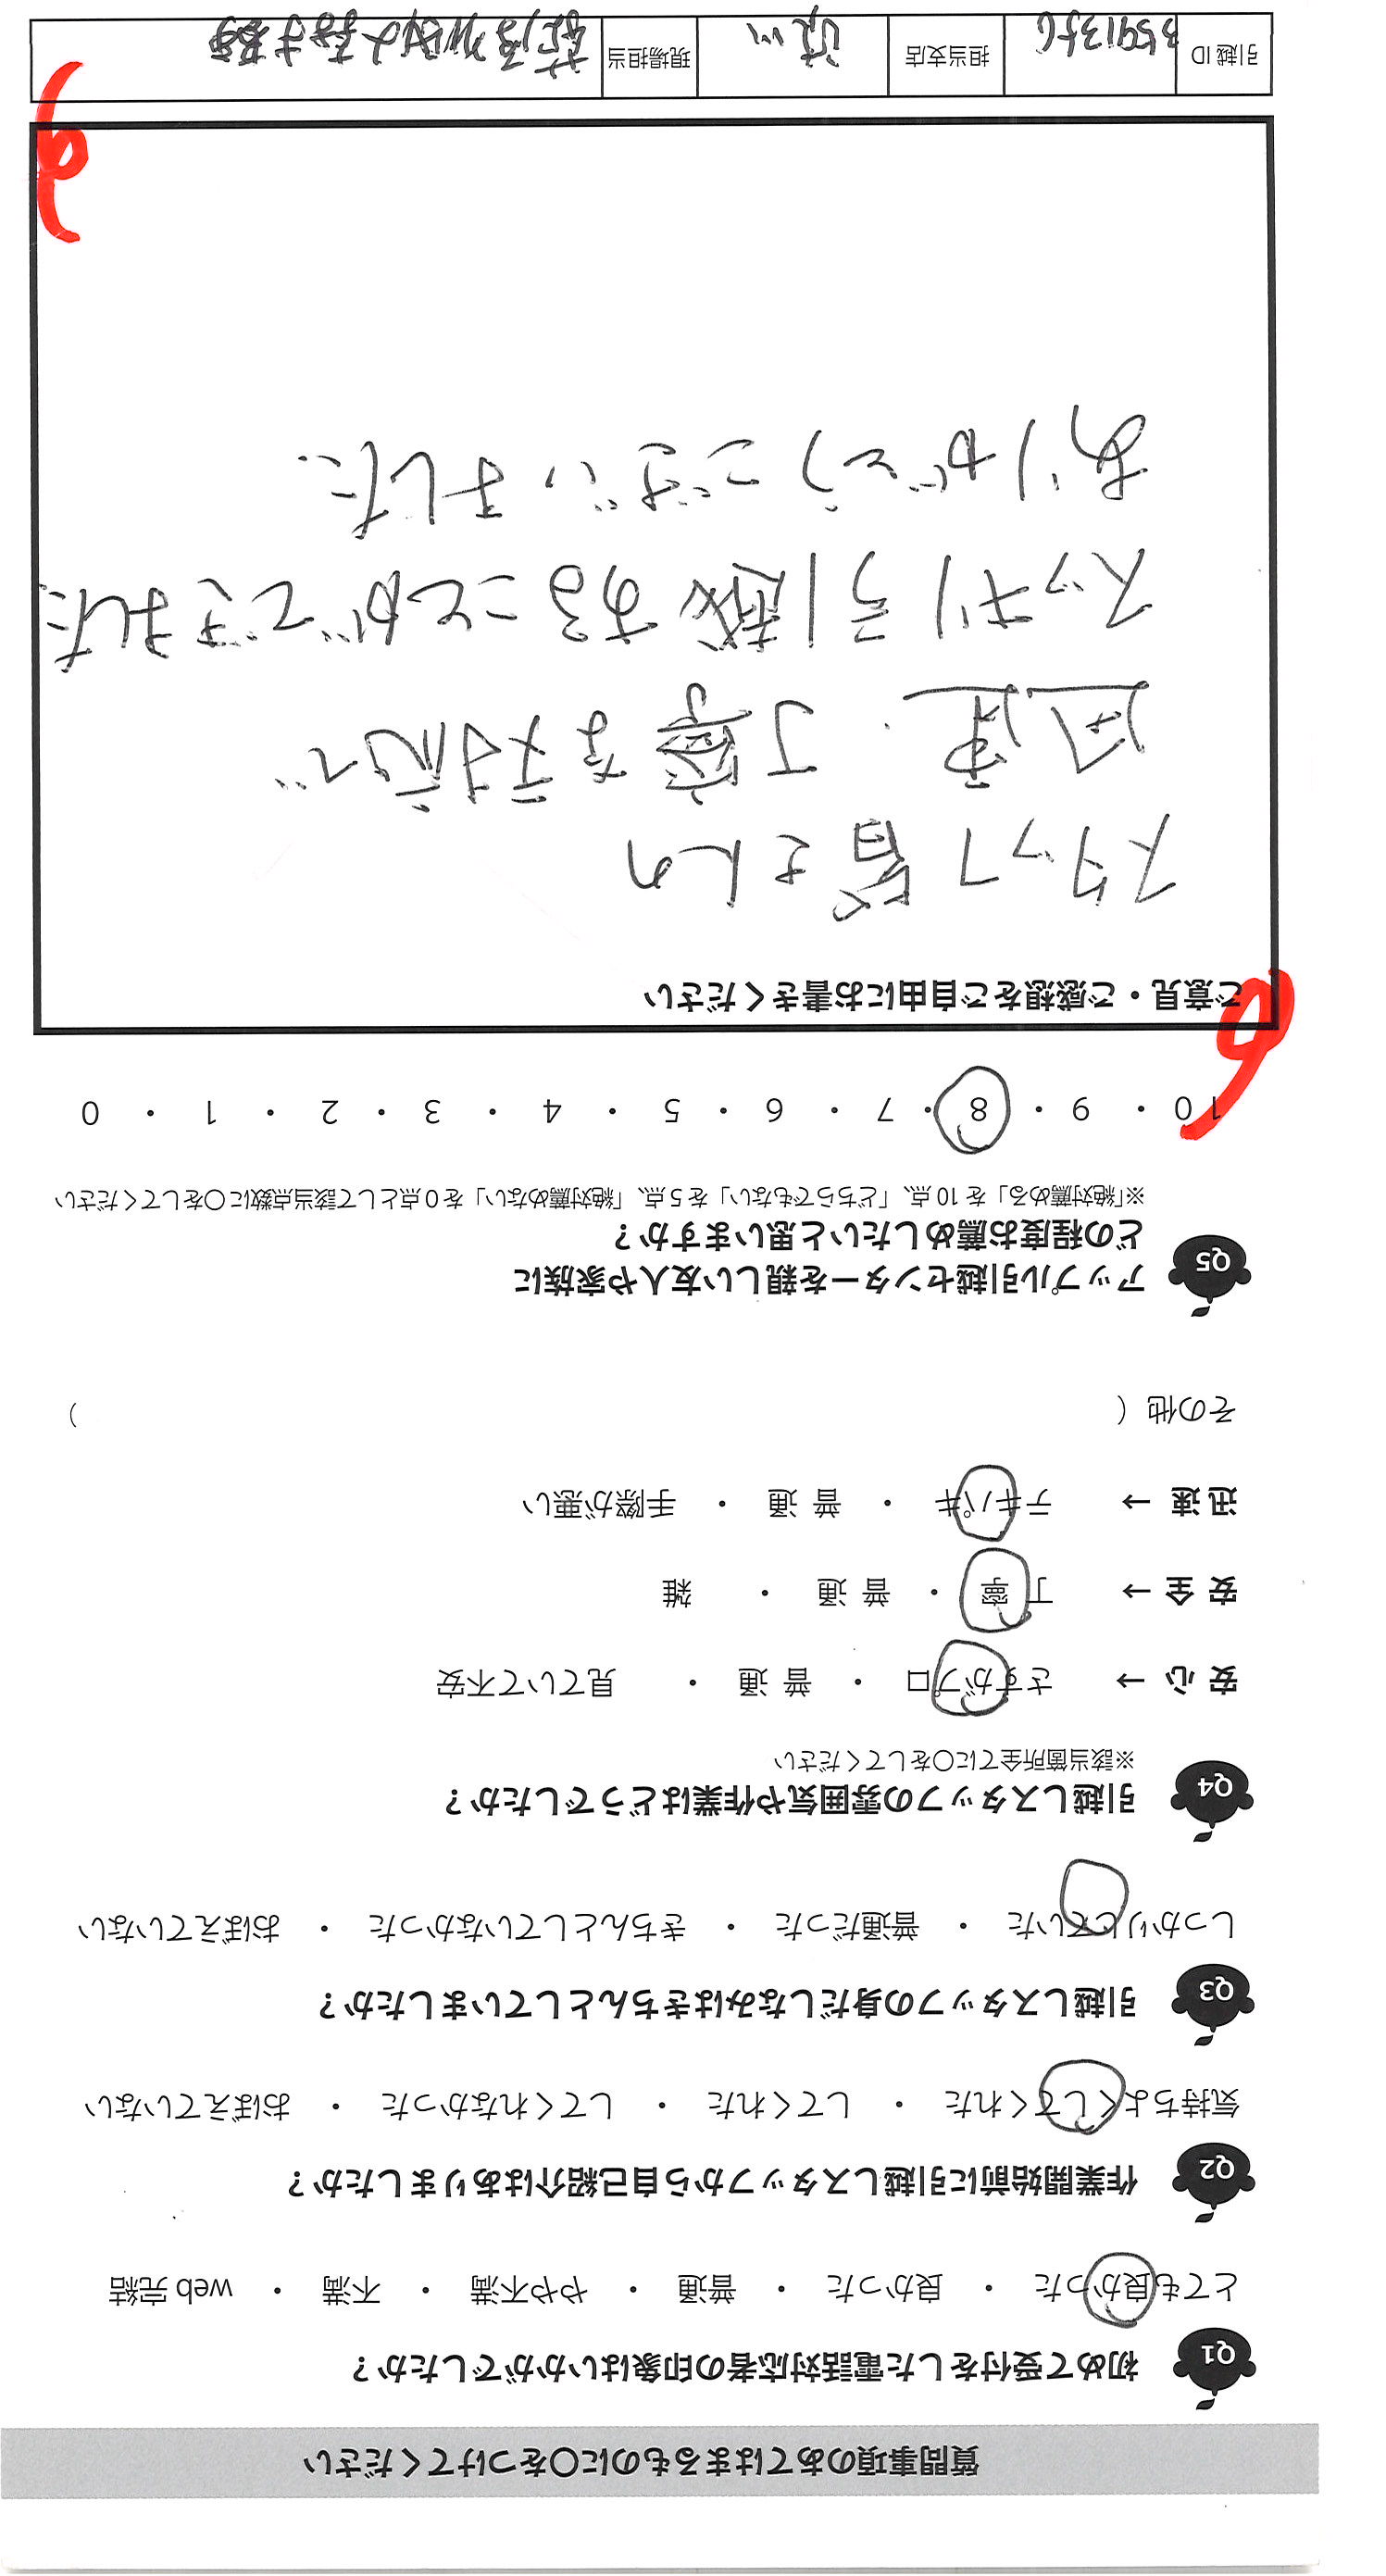 質問事項のあてはまるものに〇をつけてください
Q1 初めて受付をした電話対応者の印象はいかがでしたか？
とても良かった ・ 良かった ・ 普通 ・ やや不満 ・ 不満 ・ web 完結
Q2 作業開始前に引越しスタッフから自己紹介はありましたか？
気持ちよくしてくれた ・ してくれた ・ してくれなかった ・ おぼえていない
Q3 引越しスタッフの身だしなみはきちんとしていましたか？
しっかりしていた ・ 普通だった ・ きちんとしていなかった ・ おぼえていない
Q4 引越しスタッフの雰囲気や作業はどうでしたか？
※該当箇所全てに〇をしてください
安心 → さすがプロ ・ 普通 ・ 見ていて不安
安全 → 丁寧 ・ 普通 ・ 雑
迅速 → テキパキ ・ 普通 ・ 手際が悪い
その他 （ ）
Q5 アップル引越センターを親しい友人や家族に
どの程度お薦めしたいと思いますか？
※「絶対薦める」を 10 点、「どちらでもない」を 5 点、「絶対薦めない」を 0 点として該当点数に〇をしてください
10 ・ 9 ・ 8 ・ 7 ・ 6 ・ 5 ・ 4 ・ 3 ・ 2 ・ 1 ・ 0
ご意見・ご感想をご自由にお書きください
スタッフ皆さんの
迅速・丁寧な対応で
スッキリ引越することができました
ありがとうございました.
引越 ID 担当支店 現場担当